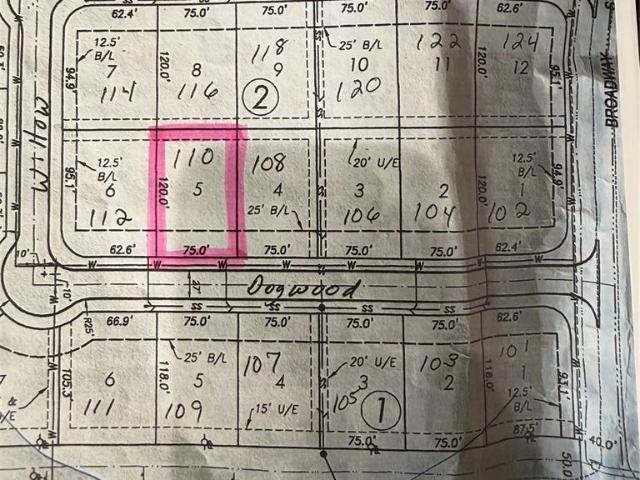 62.4' 75.0' 75.0' 75.0' 75.0' 62.6'
12.5' B/L 118 25' B/L 122 124
94.9' 7 120.0' 8 9 10 11 120.0' 12 95.1'
114 116 120
2
BROADWAY
Willow
110 108 20' U/E
12.5' B/L 12.5' B/L
95.1' 6 120.0' 5 4 3 2 120.0' 1 94.9'
112 25' B/L 106 104 102
62.6' 75.0' 75.0' 75.0' 75.0' 62.4'
W W W W W W
10' 10' 27' Dogwood
SS SS SS SS
R25' 66.9' 75.0' 75.0' 75.0' 75.0' 62.6'
25' B/L 107 20' U/E 103 101
105.3' 6 118.0' 5 4 3 2 118.0' 1 93.1'
111 109 15' U/E 105 1 12.5' B/L
75.0' 87.5' 40.0'
50.0'